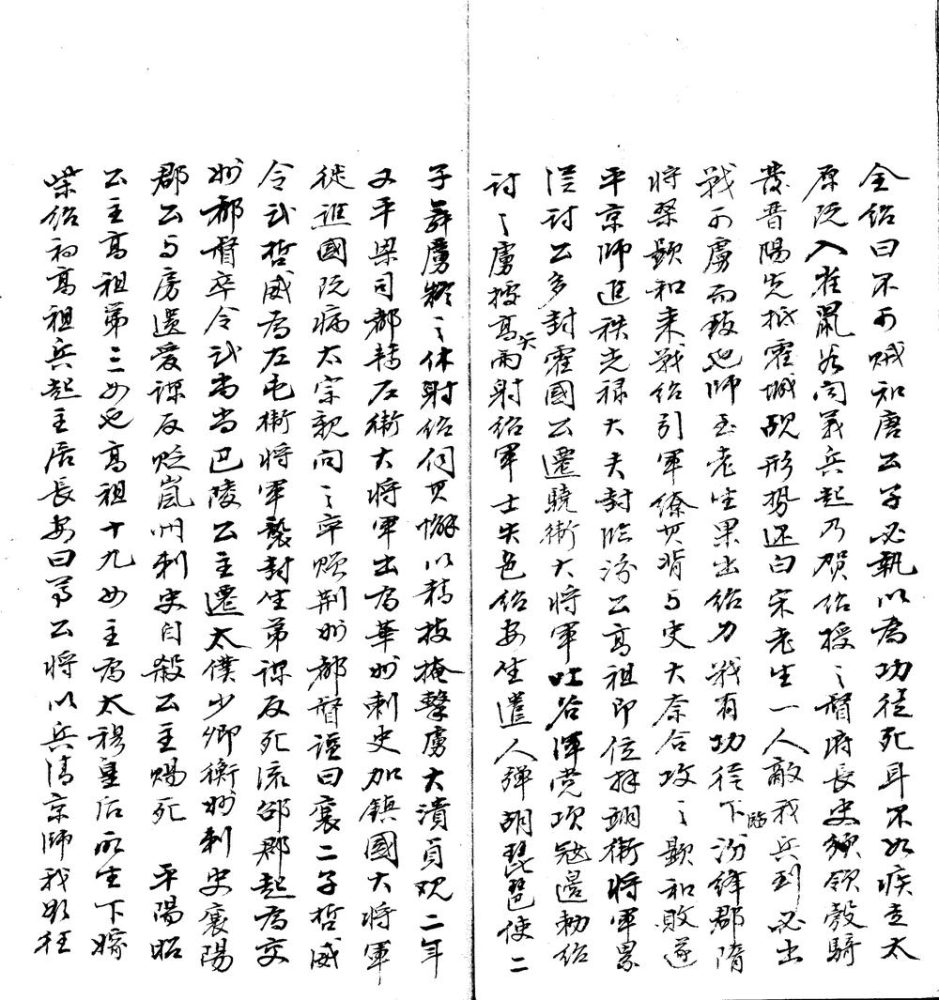 全紹曰不可賊知唐公子必執以為功徒死耳不如疾走太
原既入雀鼠谷聞義兵起乃賀紹授之督府長史領領彀騎
發晉陽先抵霍城覘形勢還白宋老生一人敵我兵到必出
戰可虜而致也師至老生果出紹力戰有功從下臨汾絳郡隋
將桑顯和來戰紹引軍繚其背與史大奈合攻之顯和敗遂
平京師進秩光祿大夫封臨汾公高祖即位拜翊衛將軍累
從討公多封霍國公遷驍衛大將軍吐谷渾党項寇邊勅紹
討之虜據高雨射紹軍士失色紹安坐遣人彈胡琵琶使二
子舞虜疑之休射紹伺其懈以精技掩擊虜大潰貞觀二年
又平梁司都轉左衛大將軍出為華州刺史加鎮國大將軍
徙譙國既病太宗親問之卒贈荊州都督謚曰襄二子哲威
令武哲威為左屯衛將軍襲封坐弟謀反死流邵郡起為交
州都督卒令武尚尚巴陵公主遷太僕少卿衛州刺史襄陽
郡公與房遺愛謀反貶嵐州刺史自殺公主賜死　平陽昭
公主高祖第三女也高祖十九女主為太穆皇后所生下嫁
柴紹初高祖兵起主居長安曰尊公將以兵清京師我欲往